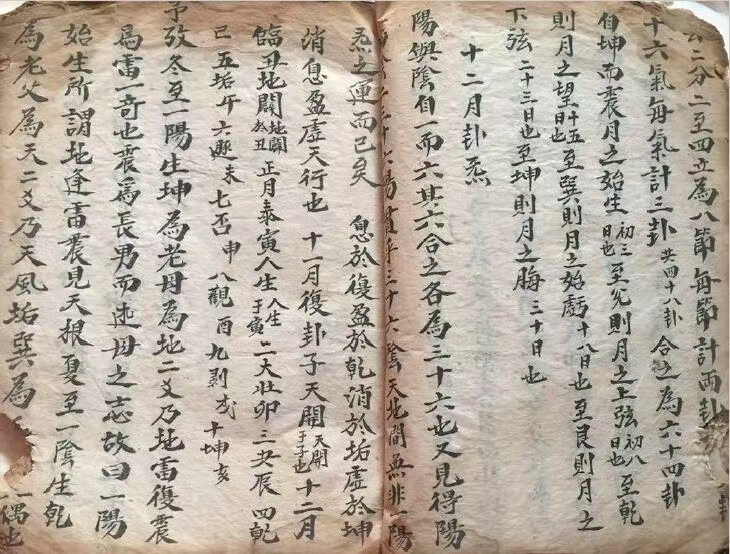 二分二至四立為八節每節計兩卦
十六氣每氣計三卦共四十八卦合之為六十四卦
自坤而震月之始生初三日也至兌則月之上弦初八日也至乾
則月之望十五日也至巽則月之始虧十八日也至艮則月之
下弦二十三日也至坤則月之晦三十日也
十二月卦炁
陽與陰自一而六其六合之各為三十六也又見得陽
陽貫乎三十六陰天地間無非一陽
炁之運而已矣 息於復盈於乾消於垢虛於坤
消息盈虛天行也 十一月復卦子天開天開于子也十二月
臨丑地闢地闢於丑正月泰寅人生人生于寅二大壯卯三夬辰四乾
巳五垢午六遯未七否申八觀酉九剥戌十坤亥
予攷冬至一陽生坤為老母為地二爻乃地雷復震
為雷一奇也震為長男而述母之志故曰一陽
始生所謂地逢雷震見天根夏至一陰生乾
為老父為天二爻乃天風垢巽為
偶也